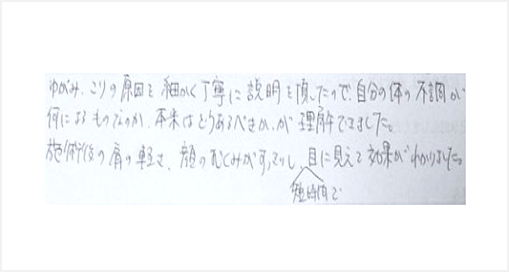 ゆがみ、こりの原因を細かく丁寧に説明を頂したので、自分の体の不調が
何によるものなのか、本来はどうあるべきか、が理解できました。
施術後の肩の軽さ、顔のむくみがすっきりし、目に見えて効果がわかりました。
短時間で